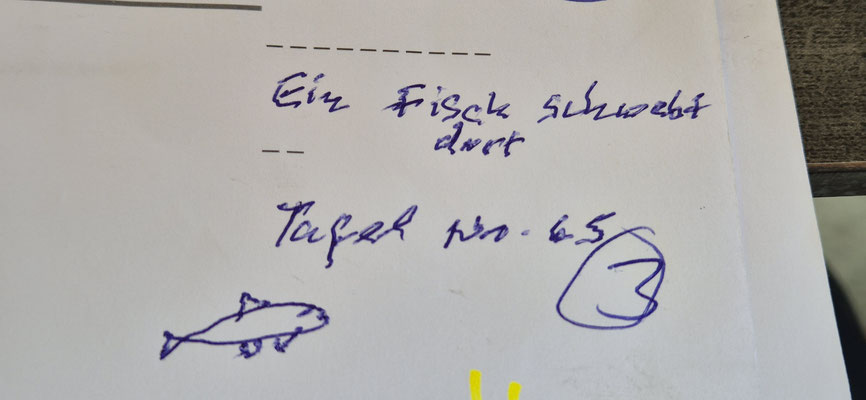 Ein Fisch schwebt
dort
Tafel Nr. 65
3